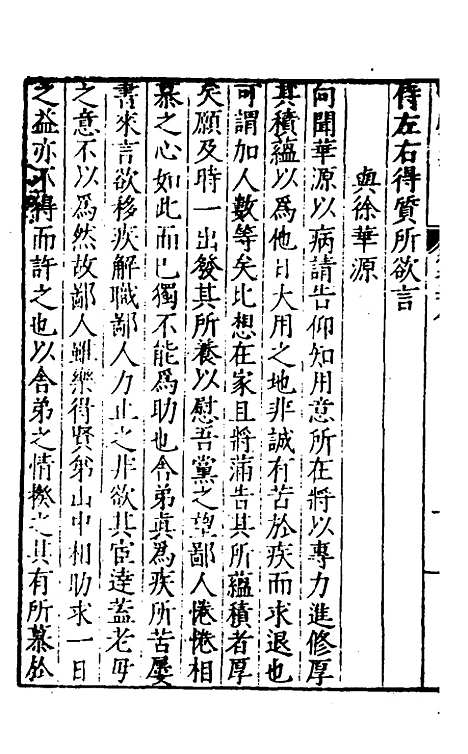 侍左右得質所欲言
與徐華源
向聞華源以病請告仰知用意所在將以專力進修厚
其積蘊以為他日大用之地非誠有苦於疾而求退也
可謂加人數等矣比想在家且將滿告其所蘊積者厚
矣願及時一出發其所養以慰吾黨之望鄙人惓惓相
慕之心如此而已獨不能為助也舍弟真為疾所苦屢
書來言欲移疾解職鄙人力止之非欲其宦達蓋老母
之意不以為然故鄙人雖樂得賢弟山中相助求一日
之益亦不得而許之也以舍弟之情揆之其有所慕於